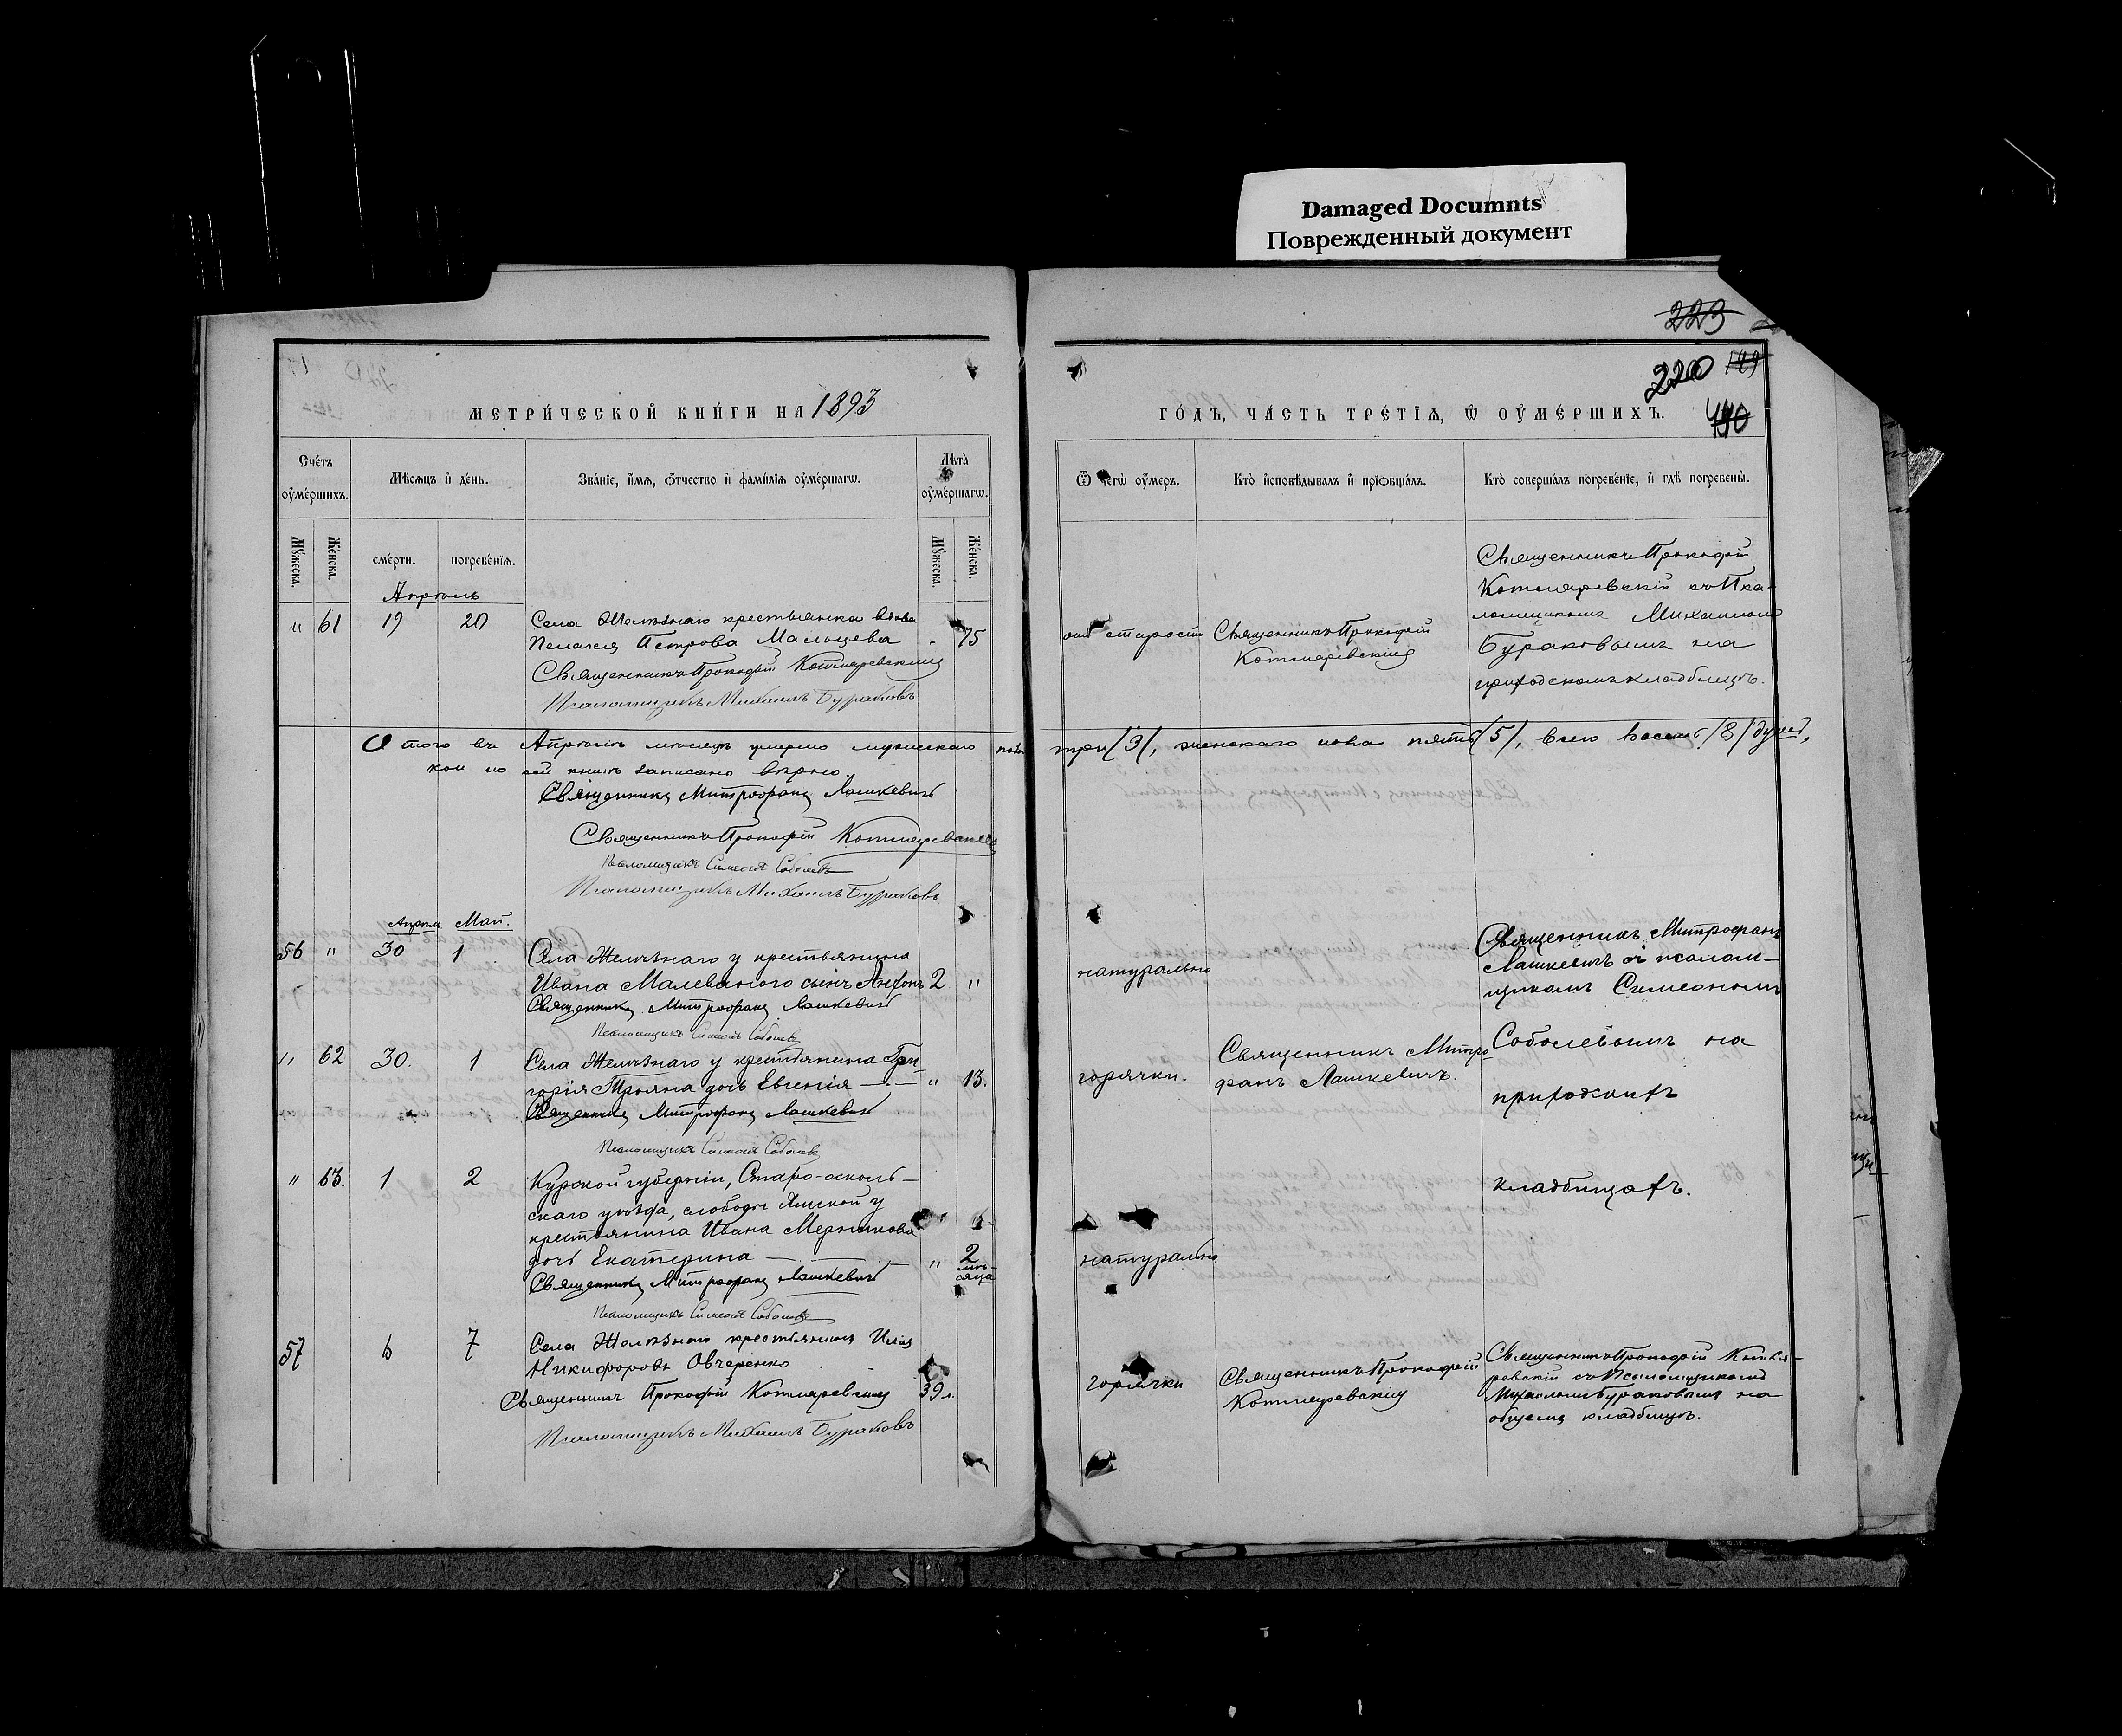 Damaged Documnts
Поврежденный документ
223
220 149
440
МЕТРИ́ЧЕСКОЙ КНИ́ГИ НА 1893
ГО́ДЪ, ЧА́СТЬ ТРЕ́ТЇѦ, Ѡ҆ ОУ҆МЕ́РШИХЪ.
Сче́тъ оу҆ме́ршихъ.
Мѣ́сѧцъ и҆ де́нь.
Зва́нїе, и҆́мѧ, ѻ҆́тчество и҆ фамилїѧ оу҆ме́ршагѡ.
Лѣ́та оу҆ме́ршагѡ.
Ѿ чегѡ̀ оу҆́меръ.
Кто̀ и҆сповѣ́дывалъ и҆ прїѡбща́лъ.
Кто̀ соверша́лъ погребе́нїе, и҆ гдѣ̀ погребены̀.
Мꙋ́жеска.
Же́нска.
сме́рти.
погребе́нїѧ.
Мꙋ́жеска.
Же́нска.
Апрѣль
" 61 19 20 Села Желѣзнаго крестьянка вдова
Пелагея Петрова Мальцева - 75
Священникъ Прокофій Котляревскій
Псаломщикъ Михаилъ Бураковъ
отъ старости
Священникъ Прокофій
Котляревскій
Священникъ Прокофій
Котляревскій съ Пса-
ломщикомъ Михаиломъ
Бураковымъ на
приходскомъ кладбищѣ.
Итого въ Апрѣлѣ мѣсяцѣ умерло мужескаго пола три /3/, женскаго пола пять /5/, всего восемь /8/ душъ,
кои по сей книгѣ записаны вѣрно.
Священникъ Митрофанъ Лашкевичъ
Священникъ Прокофій Котляревскій
Псаломщикъ Симеонъ Соболевъ
Псаломщикъ Михаилъ Бураковъ
Апрѣль Май.
56 " 30 1 Села Желѣзнаго у крестьянина
Ивана Малеваного сынъ Антонъ 2 "
Священникъ Митрофанъ Лашкевичъ
Псаломщикъ Симеонъ Соболевъ
натурально
Священникъ Митрофанъ
Лашкевичъ съ псалом-
щикомъ Симеономъ
Соболевымъ на
приходскихъ
кладбищахъ.
" 62 30. 1 Села Желѣзнаго у крестьянина Гри-
горія Трояна дочь Евгенія — " 13.
Священникъ Митрофанъ Лашкевичъ
Псаломщикъ Симеонъ Соболевъ
горячки.
Священникъ Митро-
фанъ Лашкевичъ.
" 63. 1 2 Курской губерніи, Старо-осколь-
скаго уѣзда, слободы Ямской у
крестьянина Ивана Мерникова
дочь Екатерина — " 2 мѣ-
сяца
Священникъ Митрофанъ Лашкевичъ
Псаломщикъ Симеонъ Соболевъ
натурально
57 6 7 Села Желѣзнаго крестьянинъ Илія
Никифоровъ Овчеренко
Священникъ Прокофій Котляревскій 39 л.
Псаломщикъ Михаилъ Бураковъ
горячки
Священникъ Прокофій
Котляревскій
Священникъ Прокофій Котля-
ревскій съ Псаломщикомъ
Михаиломъ Бураковымъ на
общемъ кладбищѣ.